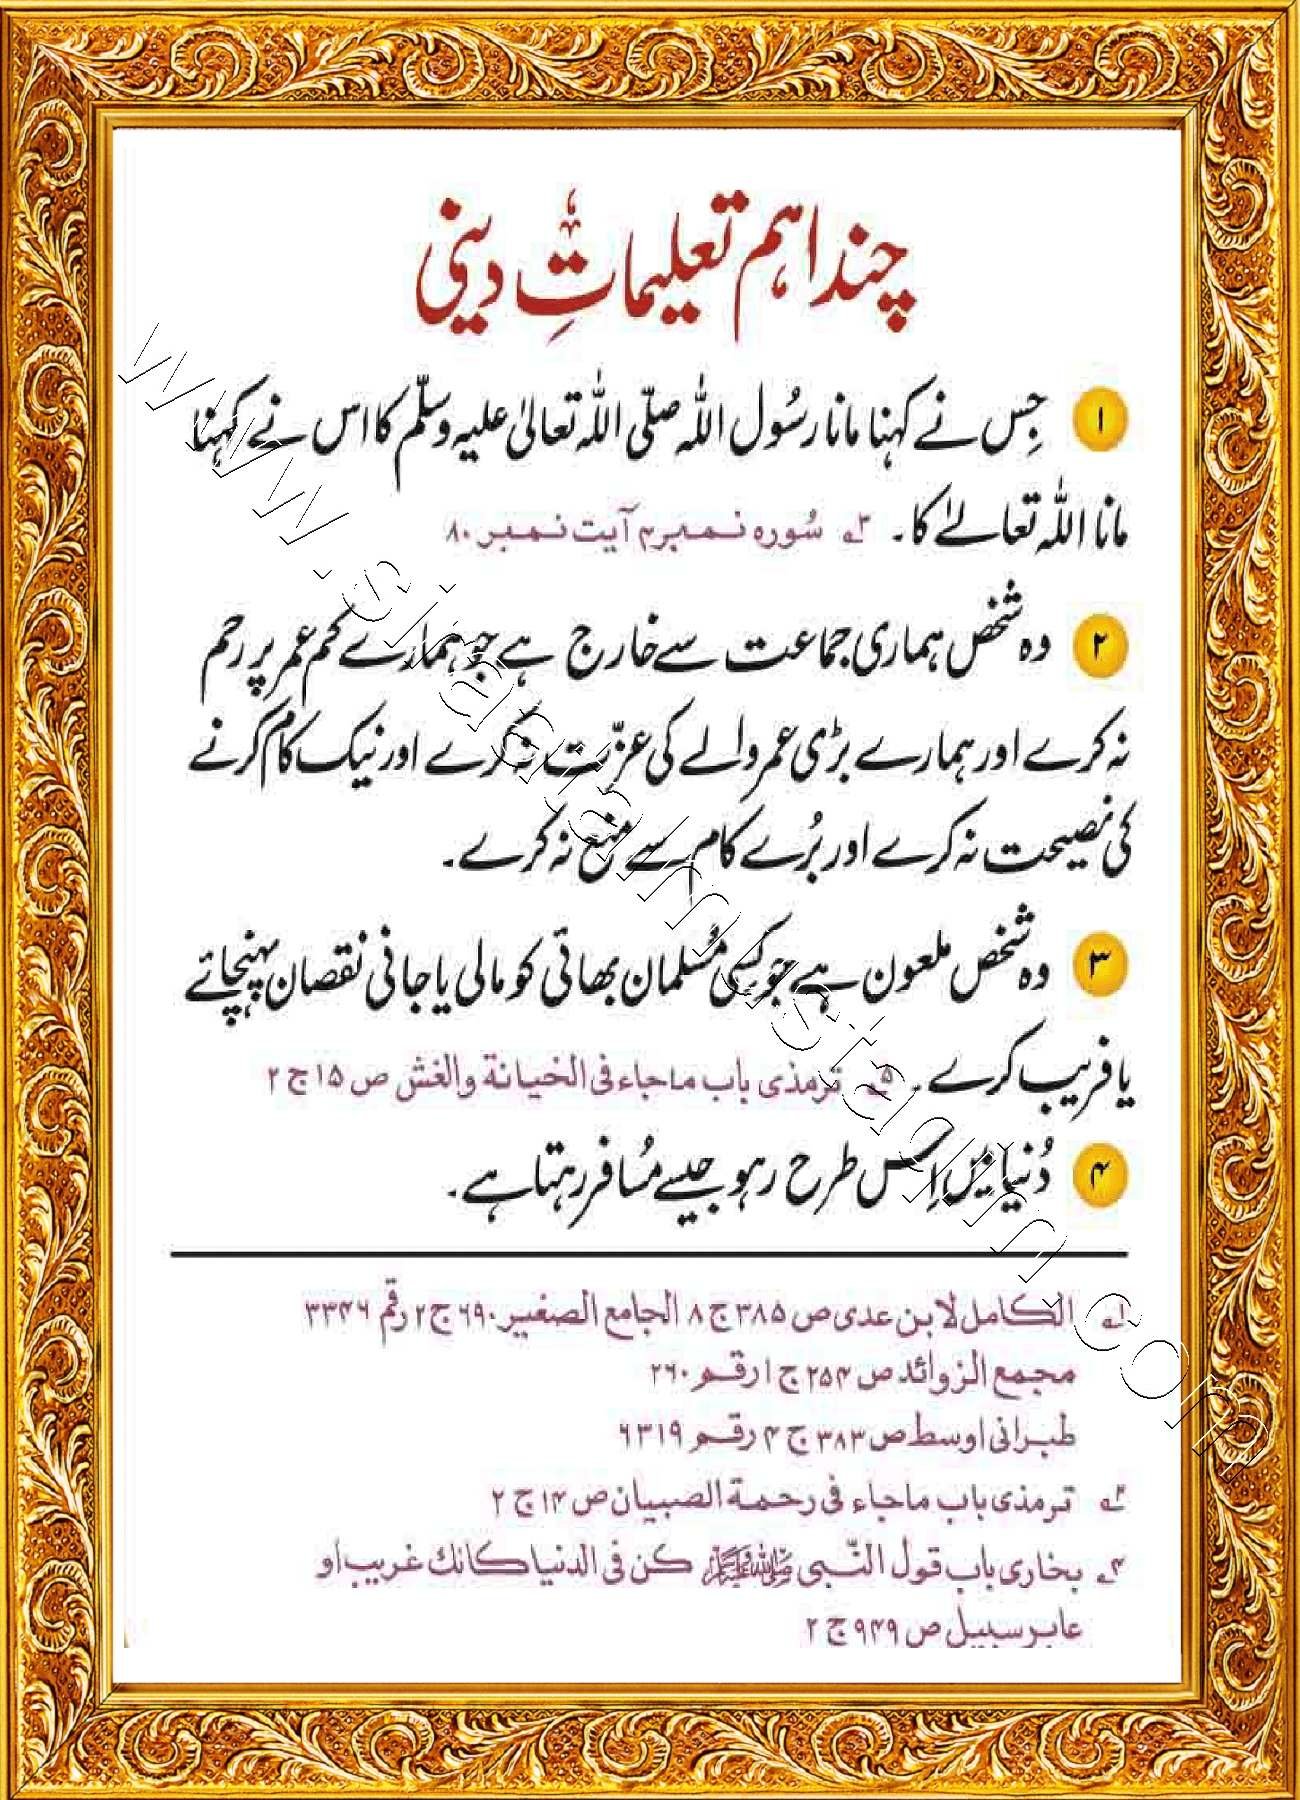 چند اہم تعلیماتِ دینی
۱ جِس نے کہنا مانا رسُول اللہ صلّی اللہ تعالیٰ علیہ وسلّم کا اس نے کہنا
مانا اللہ تعالےٰ کا۔ ۲ سُورہ نمبر ۴ آیت نمبر ۸۰
۲ وہ شخص ہماری جماعت سے خارج ہے جو ہمارے کم عمر پر رحم
نہ کرے اور ہمارے بڑی عمر والے کی عزّت نہ کرے اور نیک کام کرنے
کی نصیحت نہ کرے اور بُرے کام سے منع نہ کرے۔
۳ وہ شخص ملعون ہے جو کسی مُسلمان بھائی کو مالی یا جانی نقصان پہنچائے
یا فریب کرے۔ ۵ ترمذی باب ماجاء فی الخیانة والغش ص ۱۵ ج ۲
۴ دُنیا میں اِس طرح رہو جیسے مُسافر رہتا ہے۔
۱ الکامل لابن عدی ص ۳۸۵ ج ۸ الجامع الصغیر ۶۹۰ ج ۲ رقم ۳۳۴۶
مجمع الزوائد ص ۲۵۴ ج ۱ رقم ۲۶۰
طبرانی اوسط ص ۳۸۳ ج ۴ رقم ۶۳۱۹
۳ ترمذی باب ماجاء فی رحمة الصبیان ص ۱۴ ج ۲
۴ بخاری باب قول النّبی ﷺ کن فی الدنیا کانك غریب او
عابر سبیل ص ۹۴۹ ج ۲